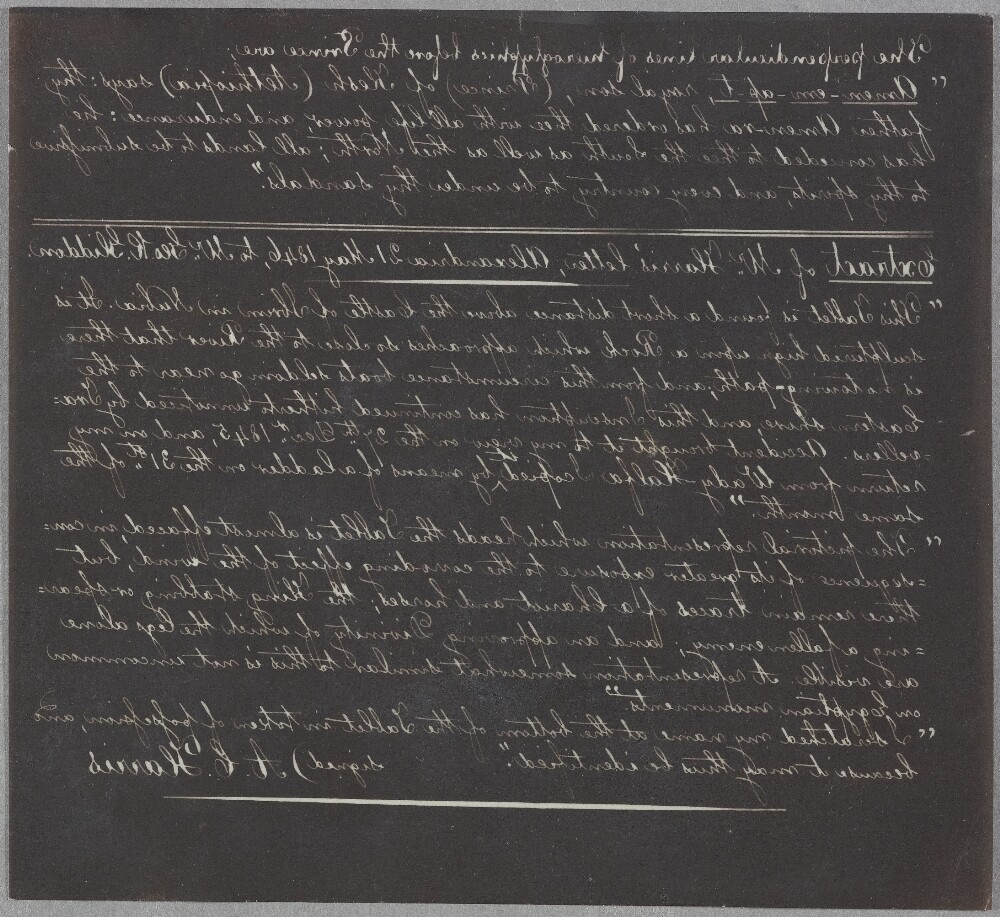 The perpendicular lines of hieroglyphics before the Prince are:
"Amen-em-ap-t, royal son, (Prince) of Kesh (Aethiopia) says: thy
father Amen-ra has ordered thee with all life, power and endurance: he
has conceded to thee the South as well as the North; all lands to be submissive
to thy spirits, and every country to be under thy sandals."
Extract of Mr. Harris' letter, Alexandria 21 May 1846, to Mr. Geo. R. Gliddon.
"This Tablet is found a short distance above the Castle of Ibrim in Nubia. It is
sculptured high upon a Rock which approaches so close to the River that there
is no towing-path, and from this circumstance boats seldom go near to the
Eastern shore, and this Inscription has continued hitherto unnoticed by Tra-
-vellers. Accident brought it to my view on the 27th Decr. 1845, and on my
return from Wady-Halfa I copied it, by means of a ladder on the 31st. of the
same month."
"The pictorial representation which heads the Tablet is almost effaced, in con-
=sequence of its greater exposure to the corroding effect of the wind, but
there remain traces of a Chariot and horses, the King stabbing or spear-
=ing a fallen enemy, and an approving Divinity of which the legs alone
are visible. A representation somewhat similar to this is not uncommon
on Egyptian monuments."
"I scratched my name at the bottom of the Tablet in token of possession, and
because it may thus be identified." signed) A. C. Harris